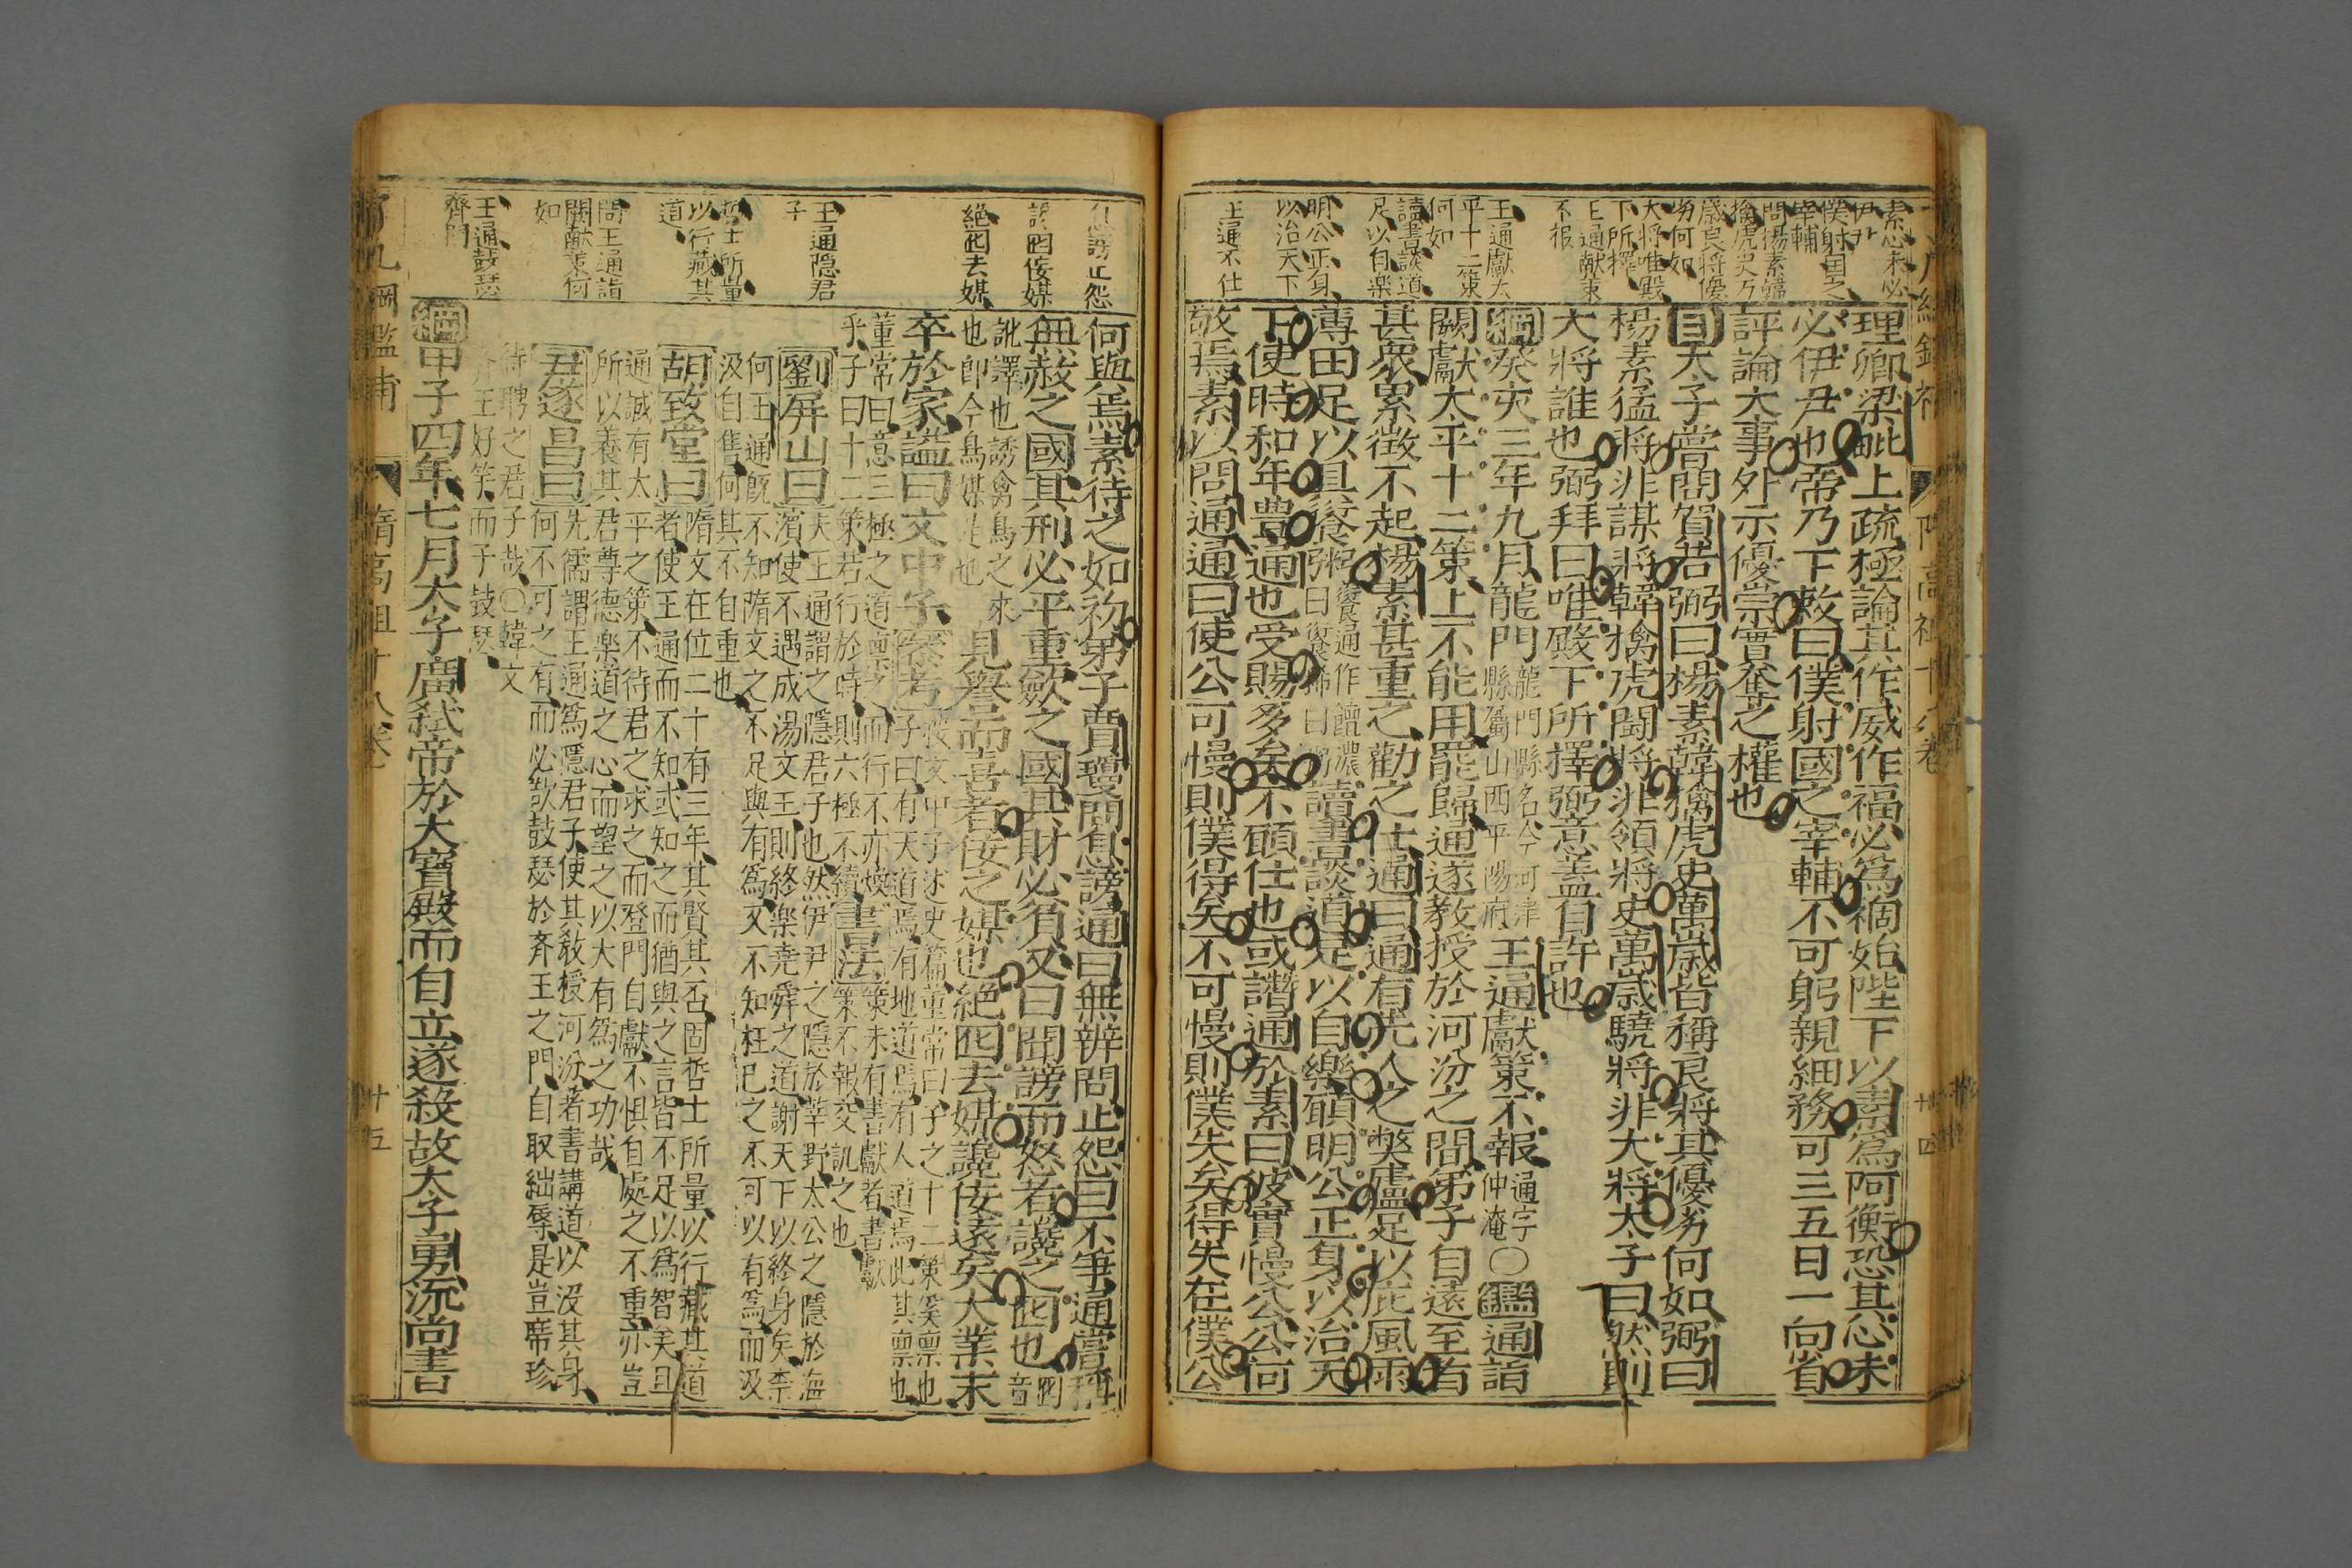 素心未必
伊尹
僕射國之
宰輔
問楊素韓
擒虎史万
歲良將優
劣何如
大將唯殿
下所擇
王通獻策
不报
王通獻太
平十二策
何如
讀書談道
足以自樂
明公正身
以治天下
王通不仕
理卿梁毗上疏極論其作威作福必爲禍始陛下以素爲阿衡恐其心未
必伊尹也帝乃下敕曰僕射國之宰輔不可躬親細務可三五日一向省
評論大事外示優崇實奪之權也
目太子嘗問賀若弼曰楊素韓擒虎史萬歲皆稱良將其優劣何如弼曰
楊素猛將非謀將韓擒虎鬬將非領將史萬歲驍將非大將太子曰然則
大將誰也弼拜曰唯殿下所擇弼意蓋自許也
綱癸亥三年九月龍門龍門縣名今河津縣屬山西平陽府王通獻策不報通字仲淹○鑑通詣
闕獻太平十二策上不能用罷歸通遂教授於河汾之間弟子自遠至者
甚衆累徵不起楊素甚重之勸之仕通曰通有先人之弊廬足以庇風雨
薄田足以具餐粥讀書談道足以自樂願明公正身以治天
下使時和年豊通也受賜多矣不願仕也或譖通於素曰彼實慢公公何
敬焉素以問通通曰使公可慢則僕得矣不可慢則僕失矣得失在僕公
隋高祖十八卷
廿四
息謗止怨
讒囮佞媒
絕囮去媒
王通隱君
子
哲士所量
以行藏其
道
問王通詣
闕献策何
如
王通鼓瑟
齊門
何與焉素待之如初弟子賈瓊問息謗通曰無辨問止怨曰不爭通嘗稱
無赦之國其刑必平重歛之國其財必貧又曰聞謗而怒者讒之囮也囮音
訛譯也誘禽鳥之來也即今鳥媒是也見譽而喜者佞之媒也絕囮去媒讒佞遠矣大業末
卒於家謚曰文中子
董常曰意三極之道禀之而行不亦煥
乎子曰十二策若行於時則六極不續書法策未有書獻者書獻
策不報交訊之也
劉屏山曰天王通謂之隱君子也然伊尹之隱於莘野太公之隱於海
濱使不遇成湯文王則終樂尭舜之道謝天下以終身矣柰
何王通旣不知隋文之不足與有爲又不知枉己之不可以有爲而汲
汲自售何其不自重也
胡致堂曰隋文在位二十有三年其賢其否固哲士所量以行藏其道
者使王通而不知或知之而猶與之言皆不足以爲智矣且
通誠有太平之策不待君之求之而登門自獻不惧自處之不重亦豈
所以養其君尊德樂道之心而望之以大有爲之功哉
尹遂昌曰先儒謂王通爲隱君子使其敎授河汾著書講道以没其身
何不可之有而必欲鼓瑟於齐王之門自取絀辱是豈席珍
待聘之君子哉○韓文
齐王好竽而子鼓瑟
綱甲子四年七月太子廣弑帝於大寶殿而自立遂殺故太子勇流尚書
了凡綱鑑補
隋高祖十八卷
廿五